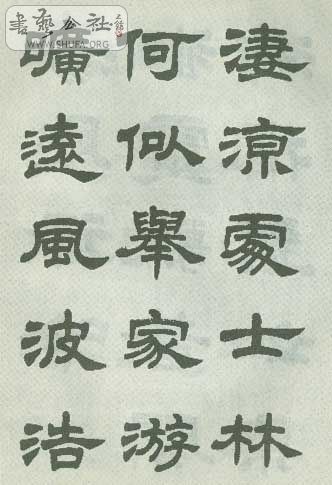 淒涼處士林
何似舉家游
曠遠風波浩
書藝公社
WWW.SHUFA.ORG